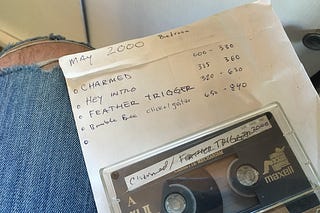 MAY 2000 Bedroom
CHARMED 000 - 330
HEY INTRO 335 360
FEATHER TRIGGER 360 - 630
Bumble Bee click/guitar 650 - 840
Charmed / FEATHER TRIGGER 2000
A
maxell